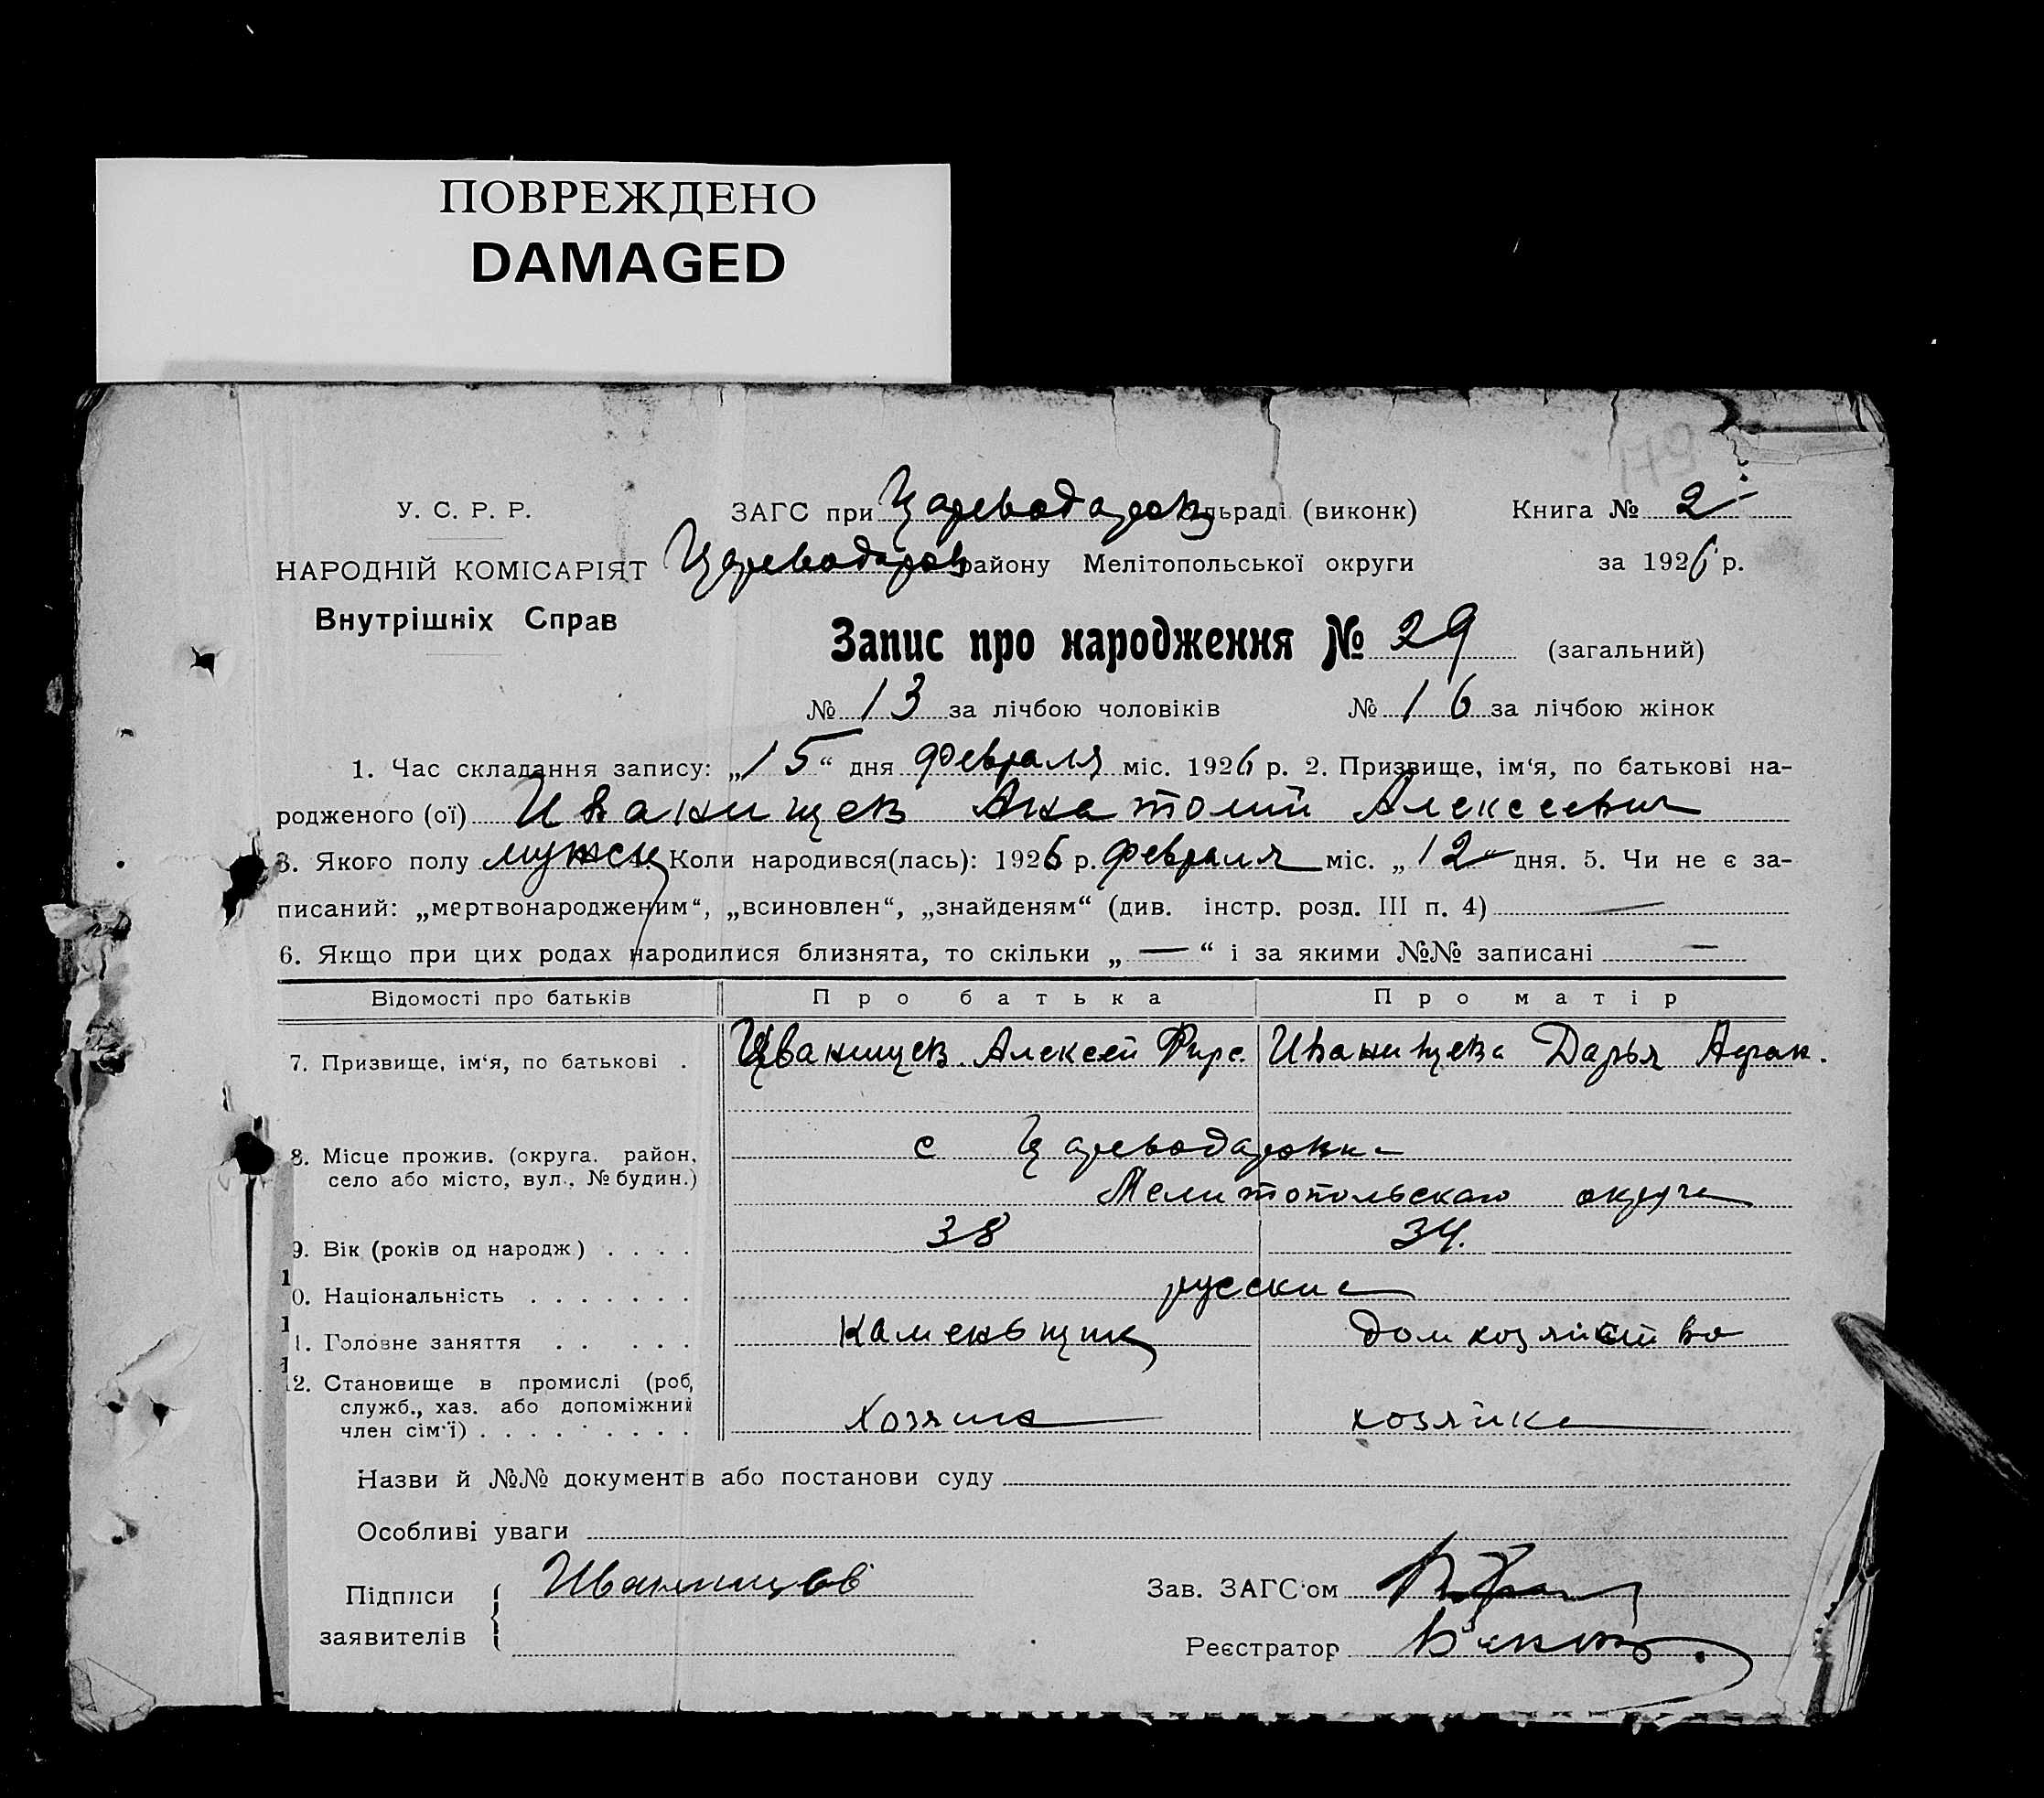 ПОВРЕЖДЕНО
DAMAGED
179
У. С. Р. Р.
НАРОДНІЙ КОМІСАРІЯТ
Внутрішніх Справ
ЗАГС при Цареводаров сільраді (виконк)
Цареводаров району Мелітопольської округи
Книга № 2
за 1926 р.
Запис про народження № 29 (загальний)
№ 13 за лічбою чоловіків № 16 за лічбою жінок
1. Час складання запису: „15“ дня февраля міс. 1926 р. 2. Призвище, ім‘я, по батькові на-
родженого (ої) Иванищев Анатолий Алексеевич
3. Якого полу мужск 4. Коли народився(лась): 1926 р. февраля міс. „12“ дня. 5. Чи не є за-
писаний: „мертвонародженим“, „всиновлен“, „знайденям“ (див. інстр. розд. III п. 4) —
6. Якщо при цих родах народилися близнята, то скільки „—“ і за якими №№ записані —
Відомості про батьків Про батька Про матір
7. Призвище, ім‘я, по батькові . Иванищев Алексей Фирс. Иванищева Дарья Афан.
8. Місце прожив. (округа. район, с Цареводаровка
село або місто, вул., № будин.) Мелитопольскаго округа
9. Вік (років од народж) . . . . 38 34.
10. Національність . . . . . . . русские
11. Головне заняття . . . . . Каменьщик домхозяйство
12. Становище в промислі (роб,
служб., хаз. або допоміжний
член сім‘ї) . . . . . . . . . Хозяин хозяйка
Назви й №№ документів або постанови суду
Особливі уваги
Підписи
заявителів
Иванищев
Зав. ЗАГС‘ом
Реєстратор